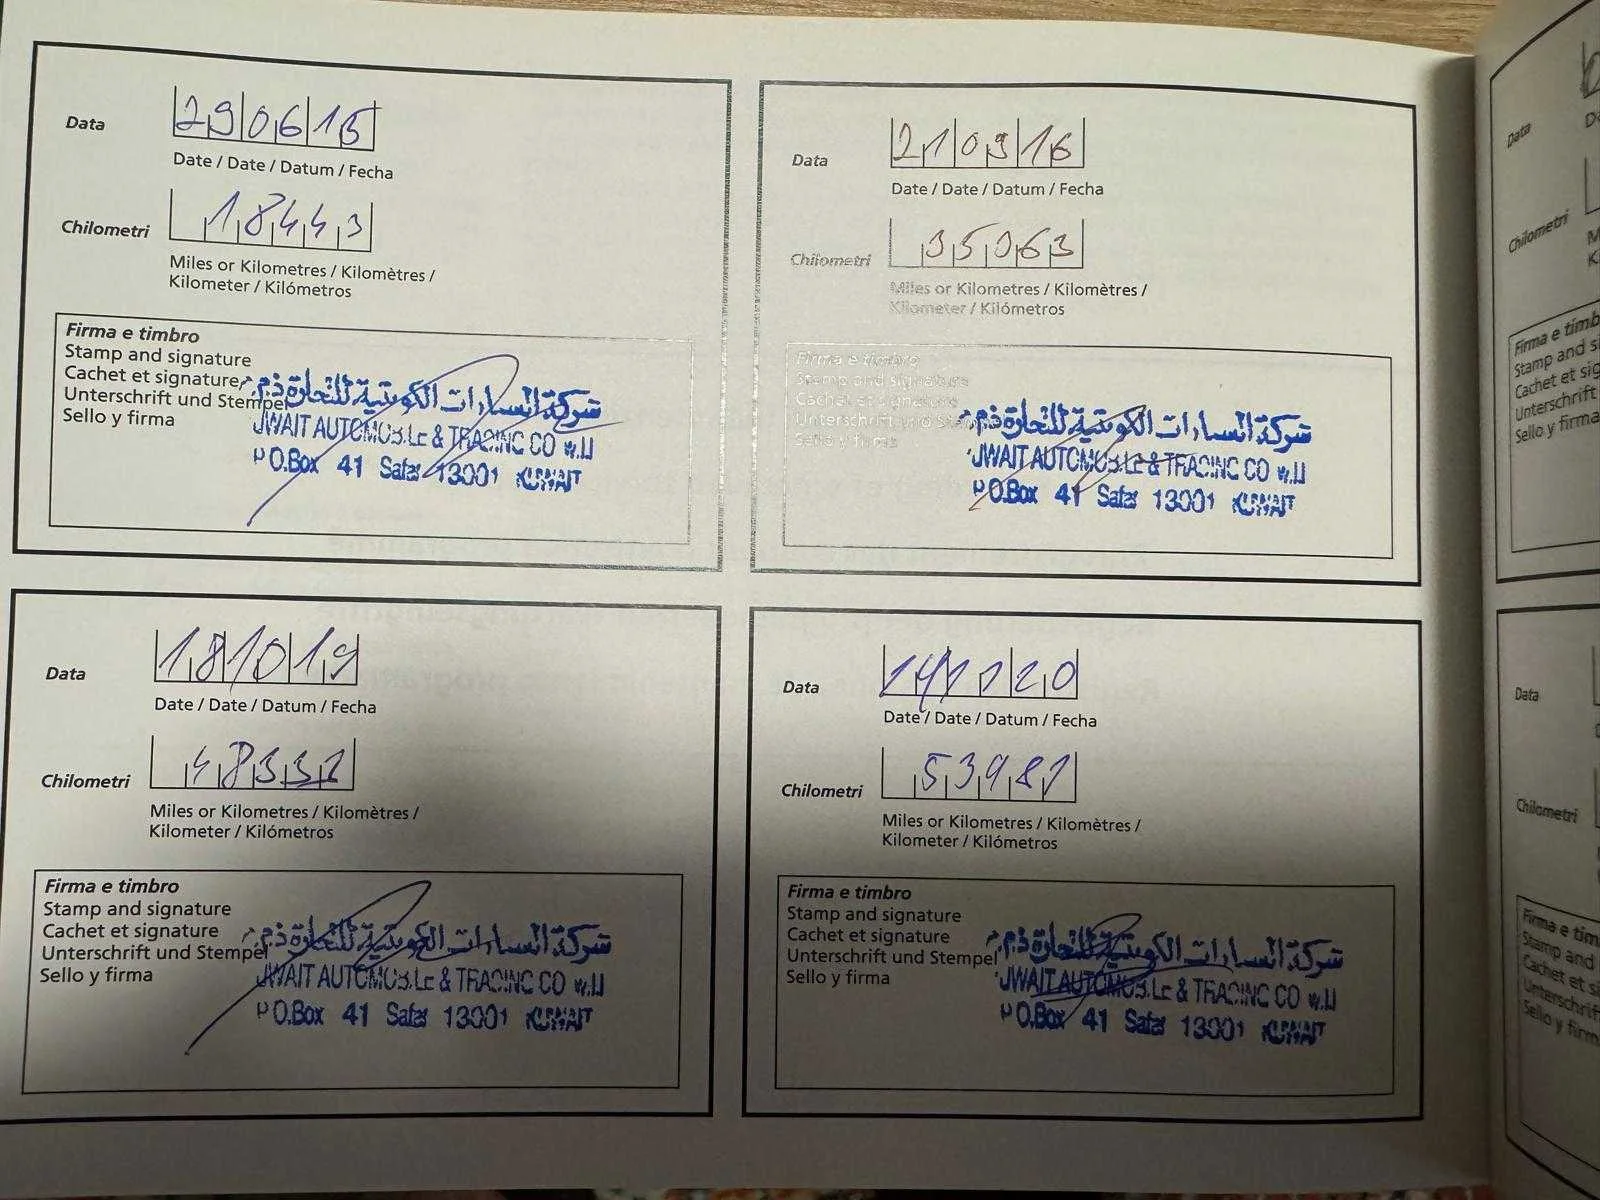 Data
290615
Date / Date / Datum / Fecha
Chilometri
18443
Miles or Kilometres / Kilomètres /
Kilometer / Kilómetros
Firma e timbro
Stamp and signature
Cachet et signature
Unterschrift und Stempel
Sello y firma
شركة السيارات الكويتية للتجارة ذ.م.م
UWAIT AUTOMOBILE & TRADING CO W.L.L
P.O.Box 41 Safat 13001 KUWAIT
Data
210916
Date / Date / Datum / Fecha
Chilometri
35063
Miles or Kilometres / Kilomètres /
Kilometer / Kilómetros
Firma e timbro
Stamp and signature
Cachet et signature
Unterschrift und Stempel
Sello y firma
شركة السيارات الكويتية للتجارة ذ.م.م
UWAIT AUTOMOBILE & TRADING CO W.L.L
P.O.Box 41 Safat 13001 KUWAIT
Data
181019
Date / Date / Datum / Fecha
Chilometri
48331
Miles or Kilometres / Kilomètres /
Kilometer / Kilómetros
Firma e timbro
Stamp and signature
Cachet et signature
Unterschrift und Stempel
Sello y firma
شركة السيارات الكويتية للتجارة ذ.م.م
UWAIT AUTOMOBILE & TRADING CO W.L.L
P.O.Box 41 Safat 13001 KUWAIT
Data
141120
Date / Date / Datum / Fecha
Chilometri
53981
Miles or Kilometres / Kilomètres /
Kilometer / Kilómetros
Firma e timbro
Stamp and signature
Cachet et signature
Unterschrift und Stempel
Sello y firma
شركة السيارات الكويتية للتجارة ذ.م.م
UWAIT AUTOMOBILE & TRADING CO W.L.L
P.O.Box 41 Safat 13001 KUWAIT
Data
Chilometri
Firma e timb
Stamp and s
Cachet et sig
Unterschrift
Sello y firma
Data
Chilometri
Firma e tim
Stamp and
Cachet et s
Unterschrift
Sello y firm